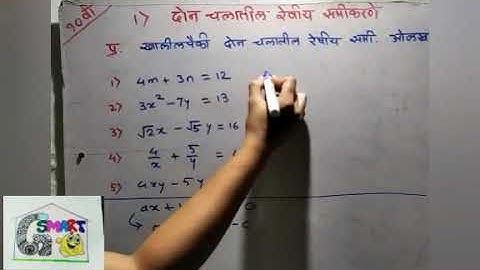 १०वी
1) दोन चलातील रेषीय समीकरणे
प्र. खालीलपैकी दोन चलातील रेषीय समी. ओळखा
1) 4m + 3n = 12
2) 3x² - 7y = 13
3) √2x - √5y = 16
4) 4/x + 5/y =
5) 4xy - 5y
ax +
SMART